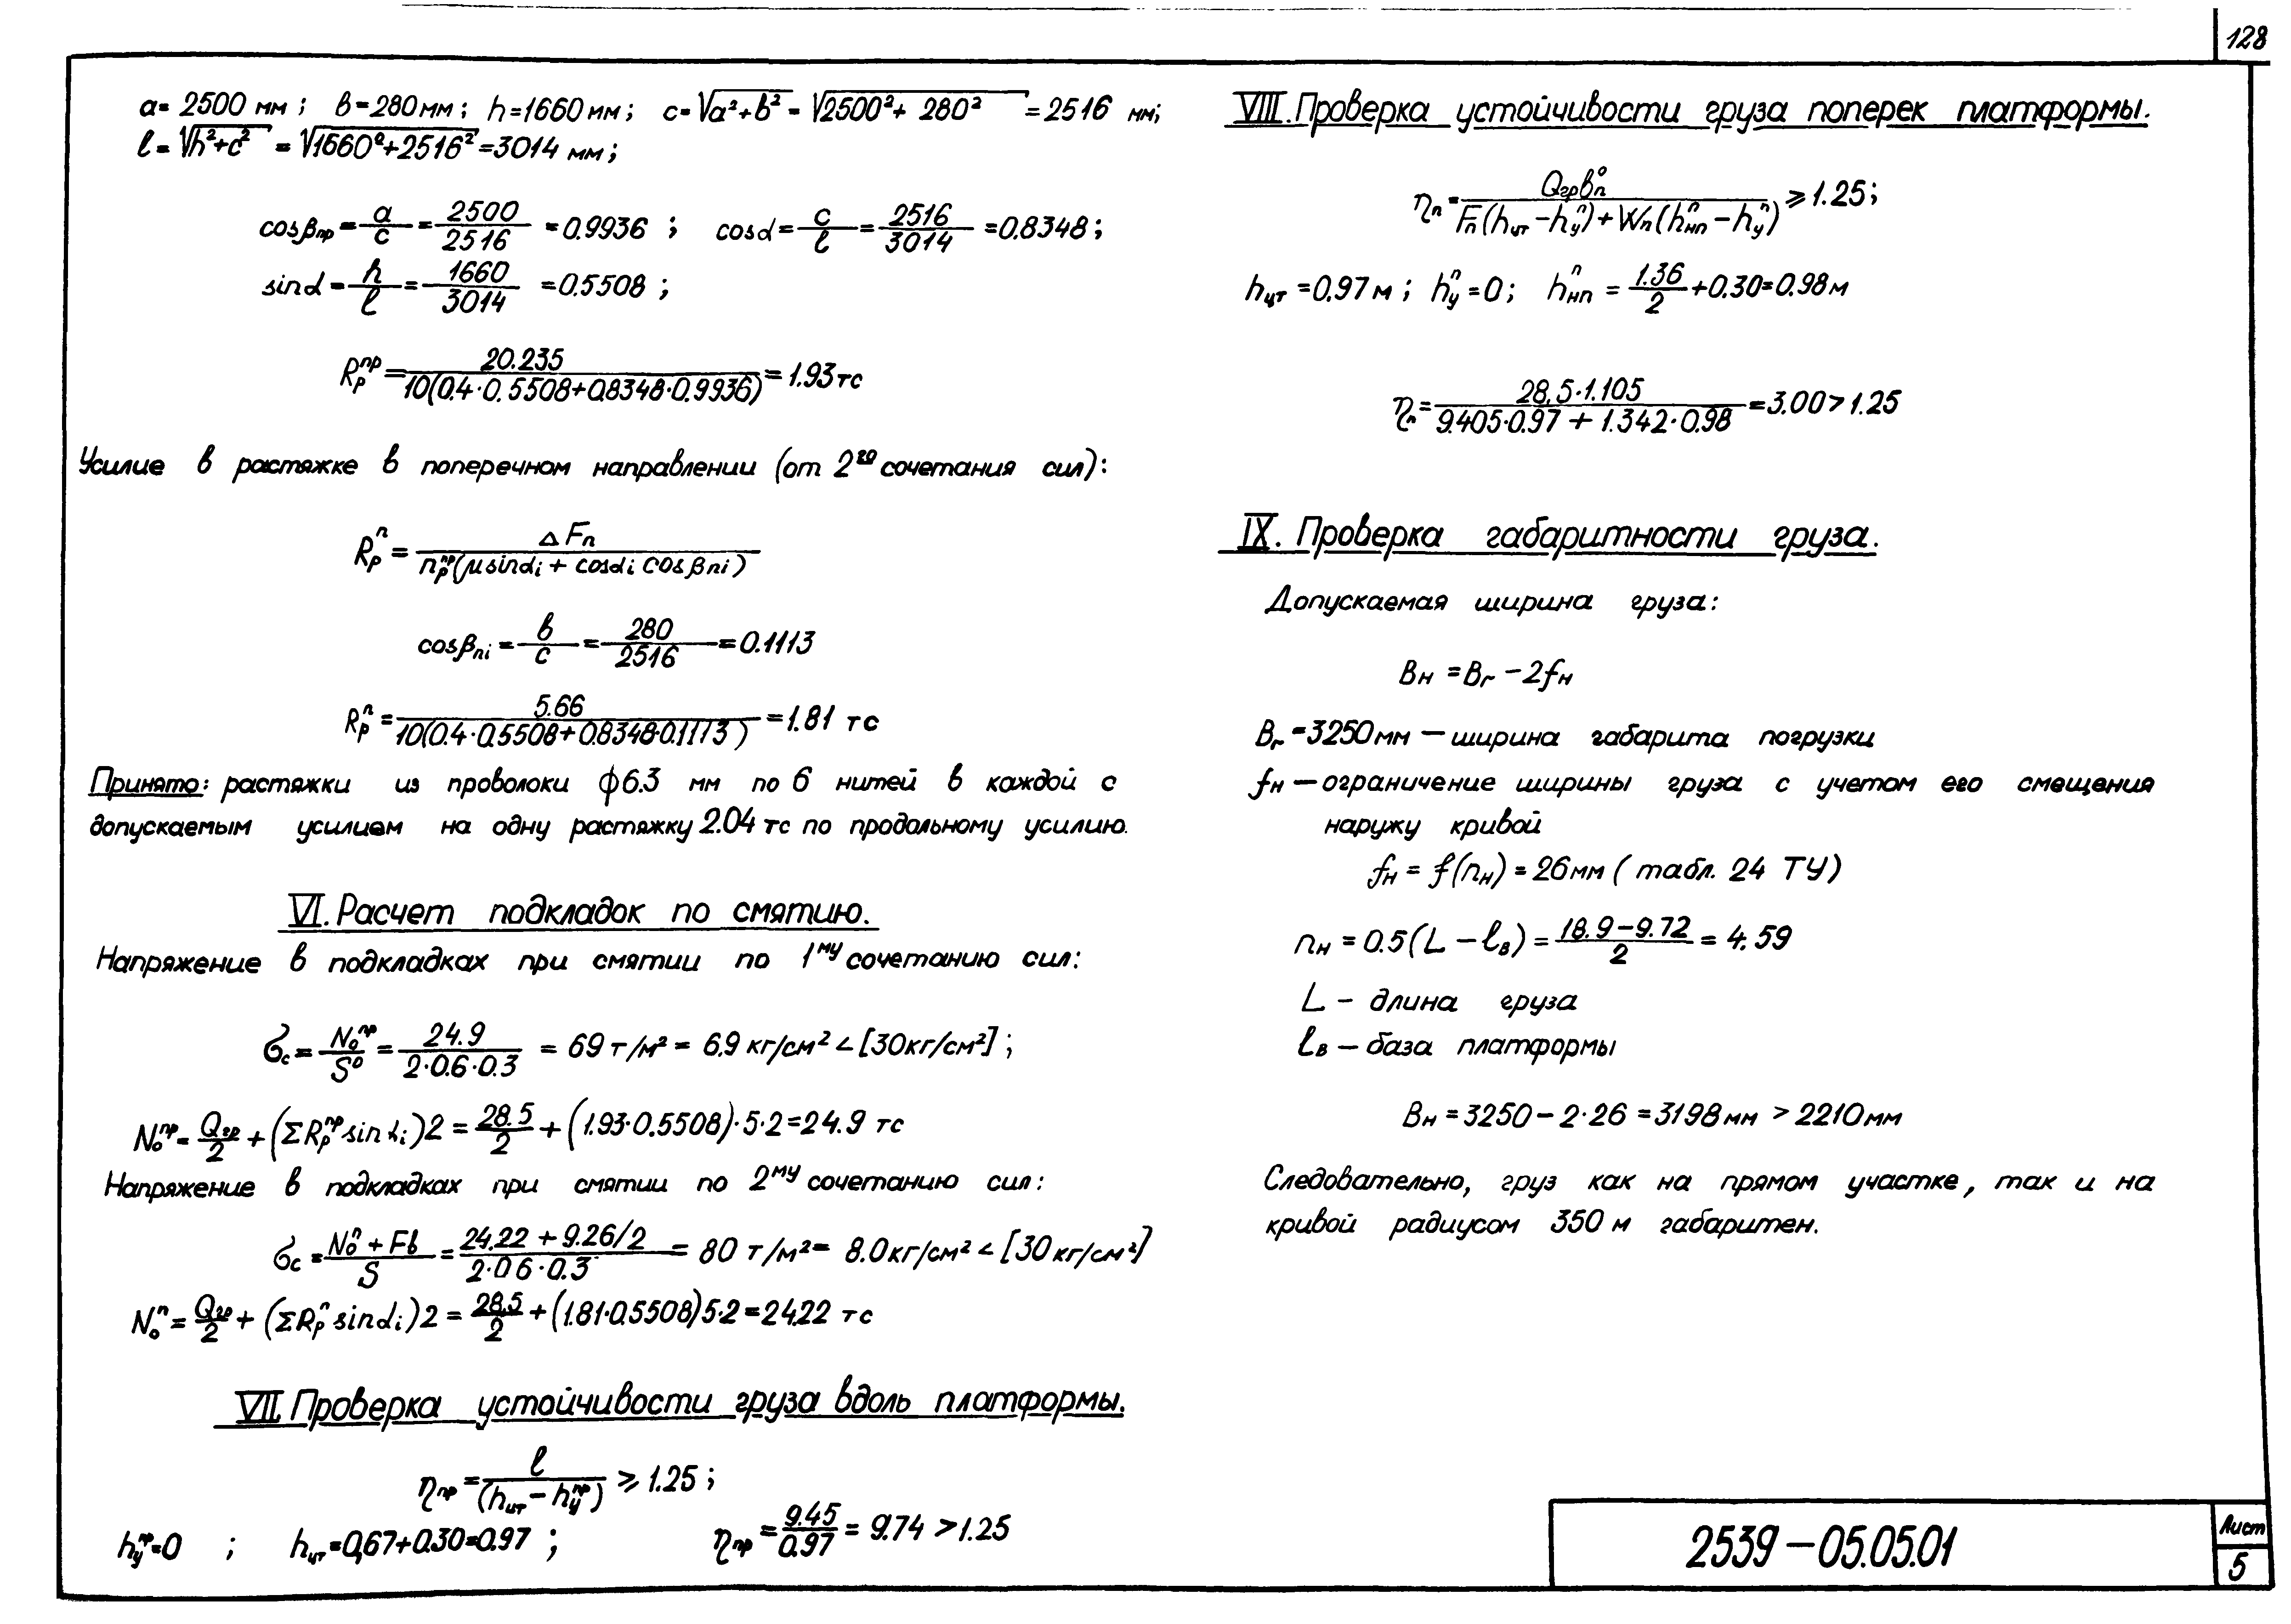 128
a= 2500 мм ; в=280мм ; h=1660 мм ; c=√a²+b² = √2500²+ 280² =2516 мм;
ℓ= √h²+c² = √1660²+2516² =3014 мм ;
cosβпр= a/c = 2500/2516 =0.9936 ; cosα= c/ℓ = 2516/3014 =0.8348 ;
sinα= h/ℓ = 1660/3014 =0.5508 ;
Rрпр= 20.235/10(0.4·0.5508+0.8348·0.9936) = 1.93 тс
Усилие в растяжке в поперечном направлении (от 2го сочетания сил):
Rрп= ΔFп/nрпр(μsinαi + cosαi cosβпi)
cosβпi = в/c = 280/2516 = 0.1113
Rрп= 5.66/10(0.4·0.5508+0.8348·0.1113) =1.81 тс
Принято: растяжки из проволоки ф6.3 мм по 6 нитей в каждой с
допускаемым усилием на одну растяжку 2.04 тс по продольному усилию.
VI. Расчет подкладок по смятию.
Напряжение в подкладках при смятии по 1му сочетанию сил:
σс= Nопр/Sо = 24.9/2·0.6·0.3 = 69 т/м² = 6.9 кг/см² < [30кг/см²] ;
Nопр= Qгр/2 + (ΣRрпр sinαi)2 = 28.5/2 + (1.93·0.5508)·5·2=24.9 тс
Напряжение в подкладках при смятии по 2му сочетанию сил:
σс = Nоп + Fв/S = 24.22 + 9.26/2/2·0.6·0.3 = 80 т/м² = 8.0кг/см² < [30кг/см²]
Nоп= Qгр/2 + (ΣRрп sinαi)2 = 28.5/2 + (1.81·0.5508)5·2=24.22 тс
VII. Проверка устойчивости груза вдоль платформы.
ηпр = ℓ/(hцт − hупр) ≥ 1.25 ;
hупр=0 ; hцт=0,67+0.30=0.97 ; ηпр = 9.45/0.97 = 9.74 >1.25
VIII. Проверка устойчивости груза поперек платформы.
ηп= Qгрвпо/Fп(hцт −hуп)+Wп(hнпп −hуп) ≥ 1.25;
hцт =0.97 м ; hуп =0 ; hнпп = 1.36/2 +0.30=0.98 м
ηп= 28.5·1.105/9.405·0.97 + 1.342·0.98 =3.00 > 1.25
IX. Проверка габаритности груза.
Допускаемая ширина груза:
Вн =Вг −2fн
Вг =3250мм − ширина габарита погрузки
fн − ограничение ширины груза с учетом его смещения
наружу кривой
fн = f(nн) = 26мм ( табл. 24 ТУ)
nн = 0.5(L − ℓв) = 18.9−9.72/2 = 4.59
L − длина груза
ℓв − база платформы
Вн =3250− 2·26 =3198мм > 2210мм
Следовательно, груз как на прямом участке, так и на
кривой радиусом 350 м габаритен.
2539−05.05.01
Лист
5